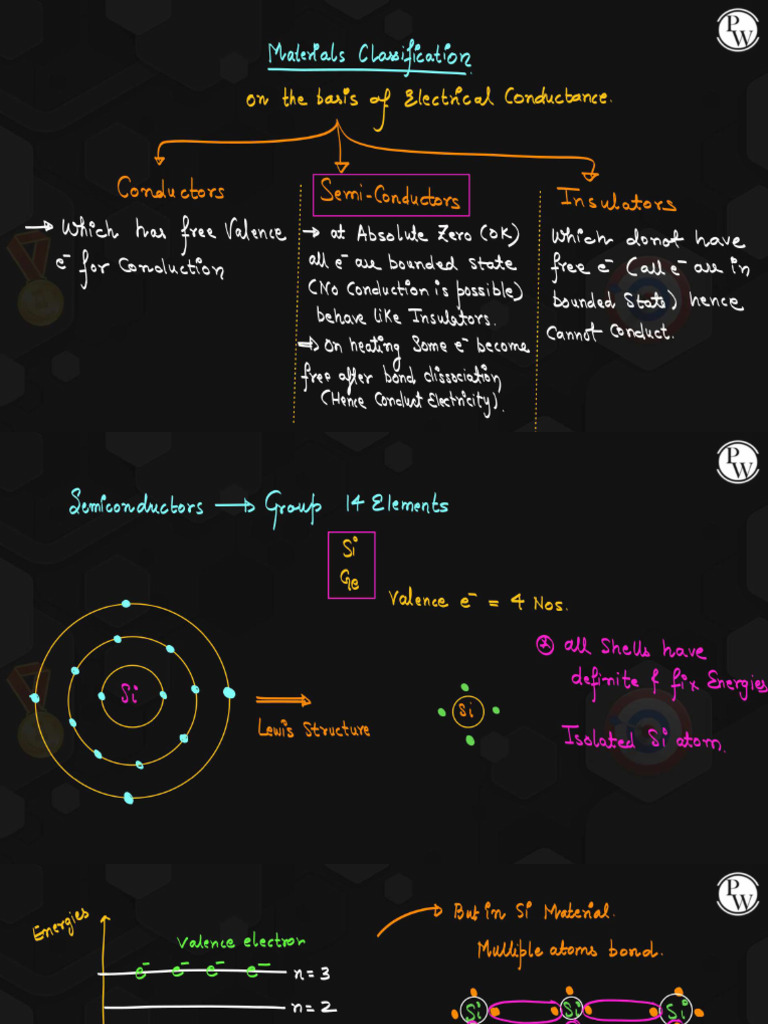 PW
Materials Classification
on the basis of Electrical Conductance.
Conductors
→ Which has free Valence
e⁻ for Conduction
Semi-Conductors
→ at Absolute Zero (0K)
all e⁻ are bounded state
(No Conduction is possible)
behave like Insulators.
⇒ on heating Some e⁻ become
free after bond dissociation
(Hence Conduct Electricity).
Insulators
Which donot have
free e⁻ (all e⁻ are in
bounded State) hence
Cannot Conduct.
PW
Semiconductors → Group 14 Elements
Si
Ge
Valence e⁻ = 4 Nos.
Si
⇒
Lewis Structure
Si
all Shells have
definite & fix Energies
Isolated Si atom.
PW
Energies
Valence electron
e⁻ e⁻ e⁻ e⁻ n=3
n=2
→ But in Si Material.
Multiple atoms bond.
Si Si Si